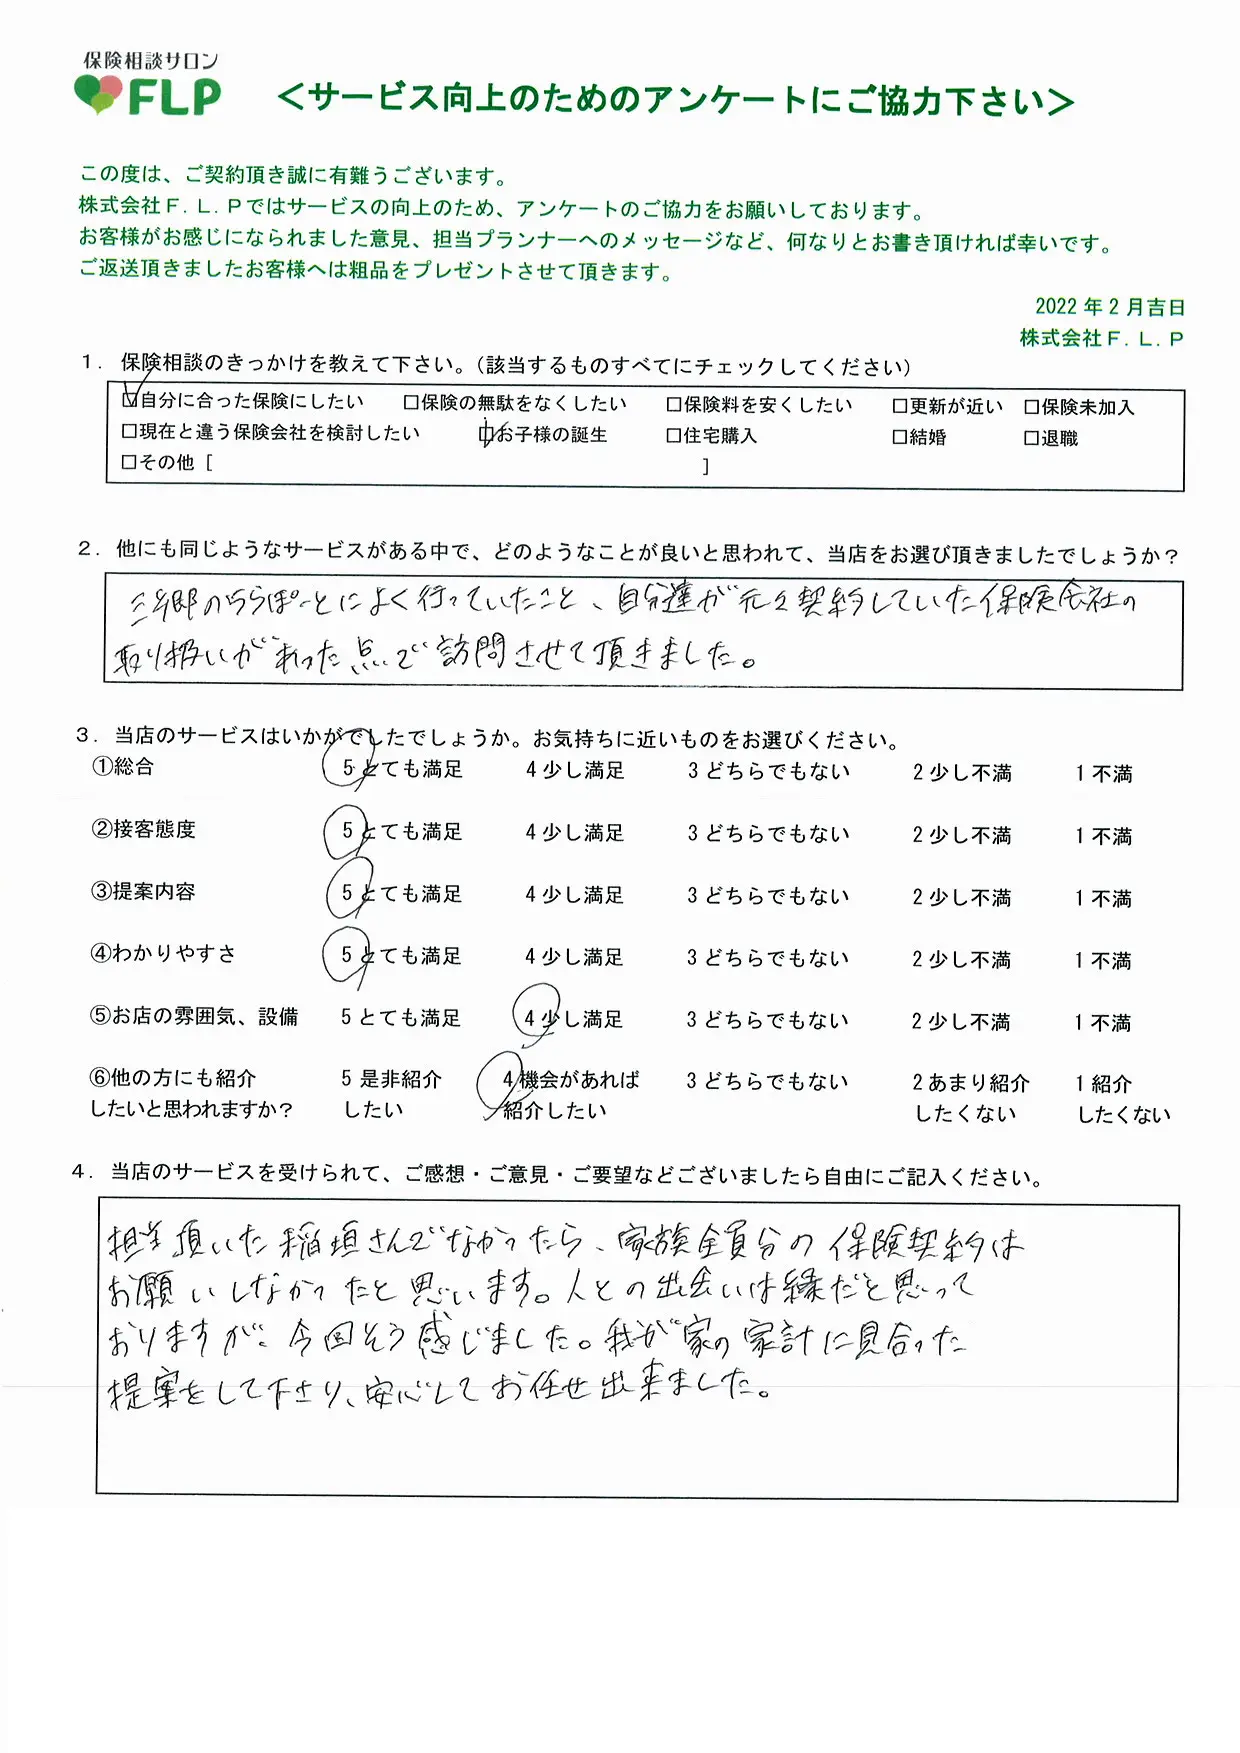 保険相談サロン
FLP
＜サービス向上のためのアンケートにご協力下さい＞
この度は、ご契約頂き誠に有難うございます。
株式会社Ｆ．Ｌ．Ｐではサービスの向上のため、アンケートのご協力をお願いしております。
お客様がお感じになられました意見、担当プランナーへのメッセージなど、何なりとお書き頂ければ幸いです。
ご返送頂きましたお客様へは粗品をプレゼントさせて頂きます。
2022 年 2 月吉日
株式会社Ｆ．Ｌ．Ｐ
１．保険相談のきっかけを教えて下さい。（該当するものすべてにチェックしてください）
☑自分に合った保険にしたい □保険の無駄をなくしたい □保険料を安くしたい □更新が近い □保険未加入
□現在と違う保険会社を検討したい ☑お子様の誕生 □住宅購入 □結婚 □退職
□その他［ ］
２．他にも同じようなサービスがある中で、どのようなことが良いと思われて、当店をお選び頂きましたでしょうか？
三郷のららぽーとによく行っていたこと、自分達が元々契約していた保険会社の
取り扱いがあった点で訪問させて頂きました。
３．当店のサービスはいかがでしたでしょうか。お気持ちに近いものをお選びください。
①総合 5 とても満足 4 少し満足 3 どちらでもない 2 少し不満 1 不満
②接客態度 5 とても満足 4 少し満足 3 どちらでもない 2 少し不満 1 不満
③提案内容 5 とても満足 4 少し満足 3 どちらでもない 2 少し不満 1 不満
④わかりやすさ 5 とても満足 4 少し満足 3 どちらでもない 2 少し不満 1 不満
⑤お店の雰囲気、設備 5 とても満足 4 少し満足 3 どちらでもない 2 少し不満 1 不満
⑥他の方にも紹介 5 是非紹介 4 機会があれば 3 どちらでもない 2 あまり紹介 1 紹介
したいと思われますか？ したい 紹介したい したくない したくない
４．当店のサービスを受けられて、ご感想・ご意見・ご要望などございましたら自由にご記入ください。
担当頂いた稲垣さんでなかったら、家族全員分の保険契約は
お願いしなかったと思います。人との出会いは縁だと思って
おりますが、今回そう感じました。我が家の家計に見合った
提案をして下さり、安心してお任せ出来ました。